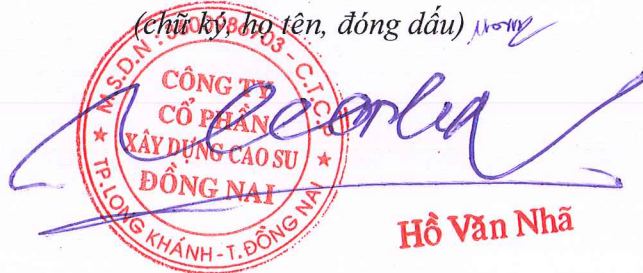 (chữ ký, họ tên, đóng dấu)
CÔNG TY
CỔ PHẦN
XÂY DỰNG CAO SU
ĐỒNG NAI
TP.LONG KHÁNH - T.ĐỒNG NAI
Hồ Văn Nhã